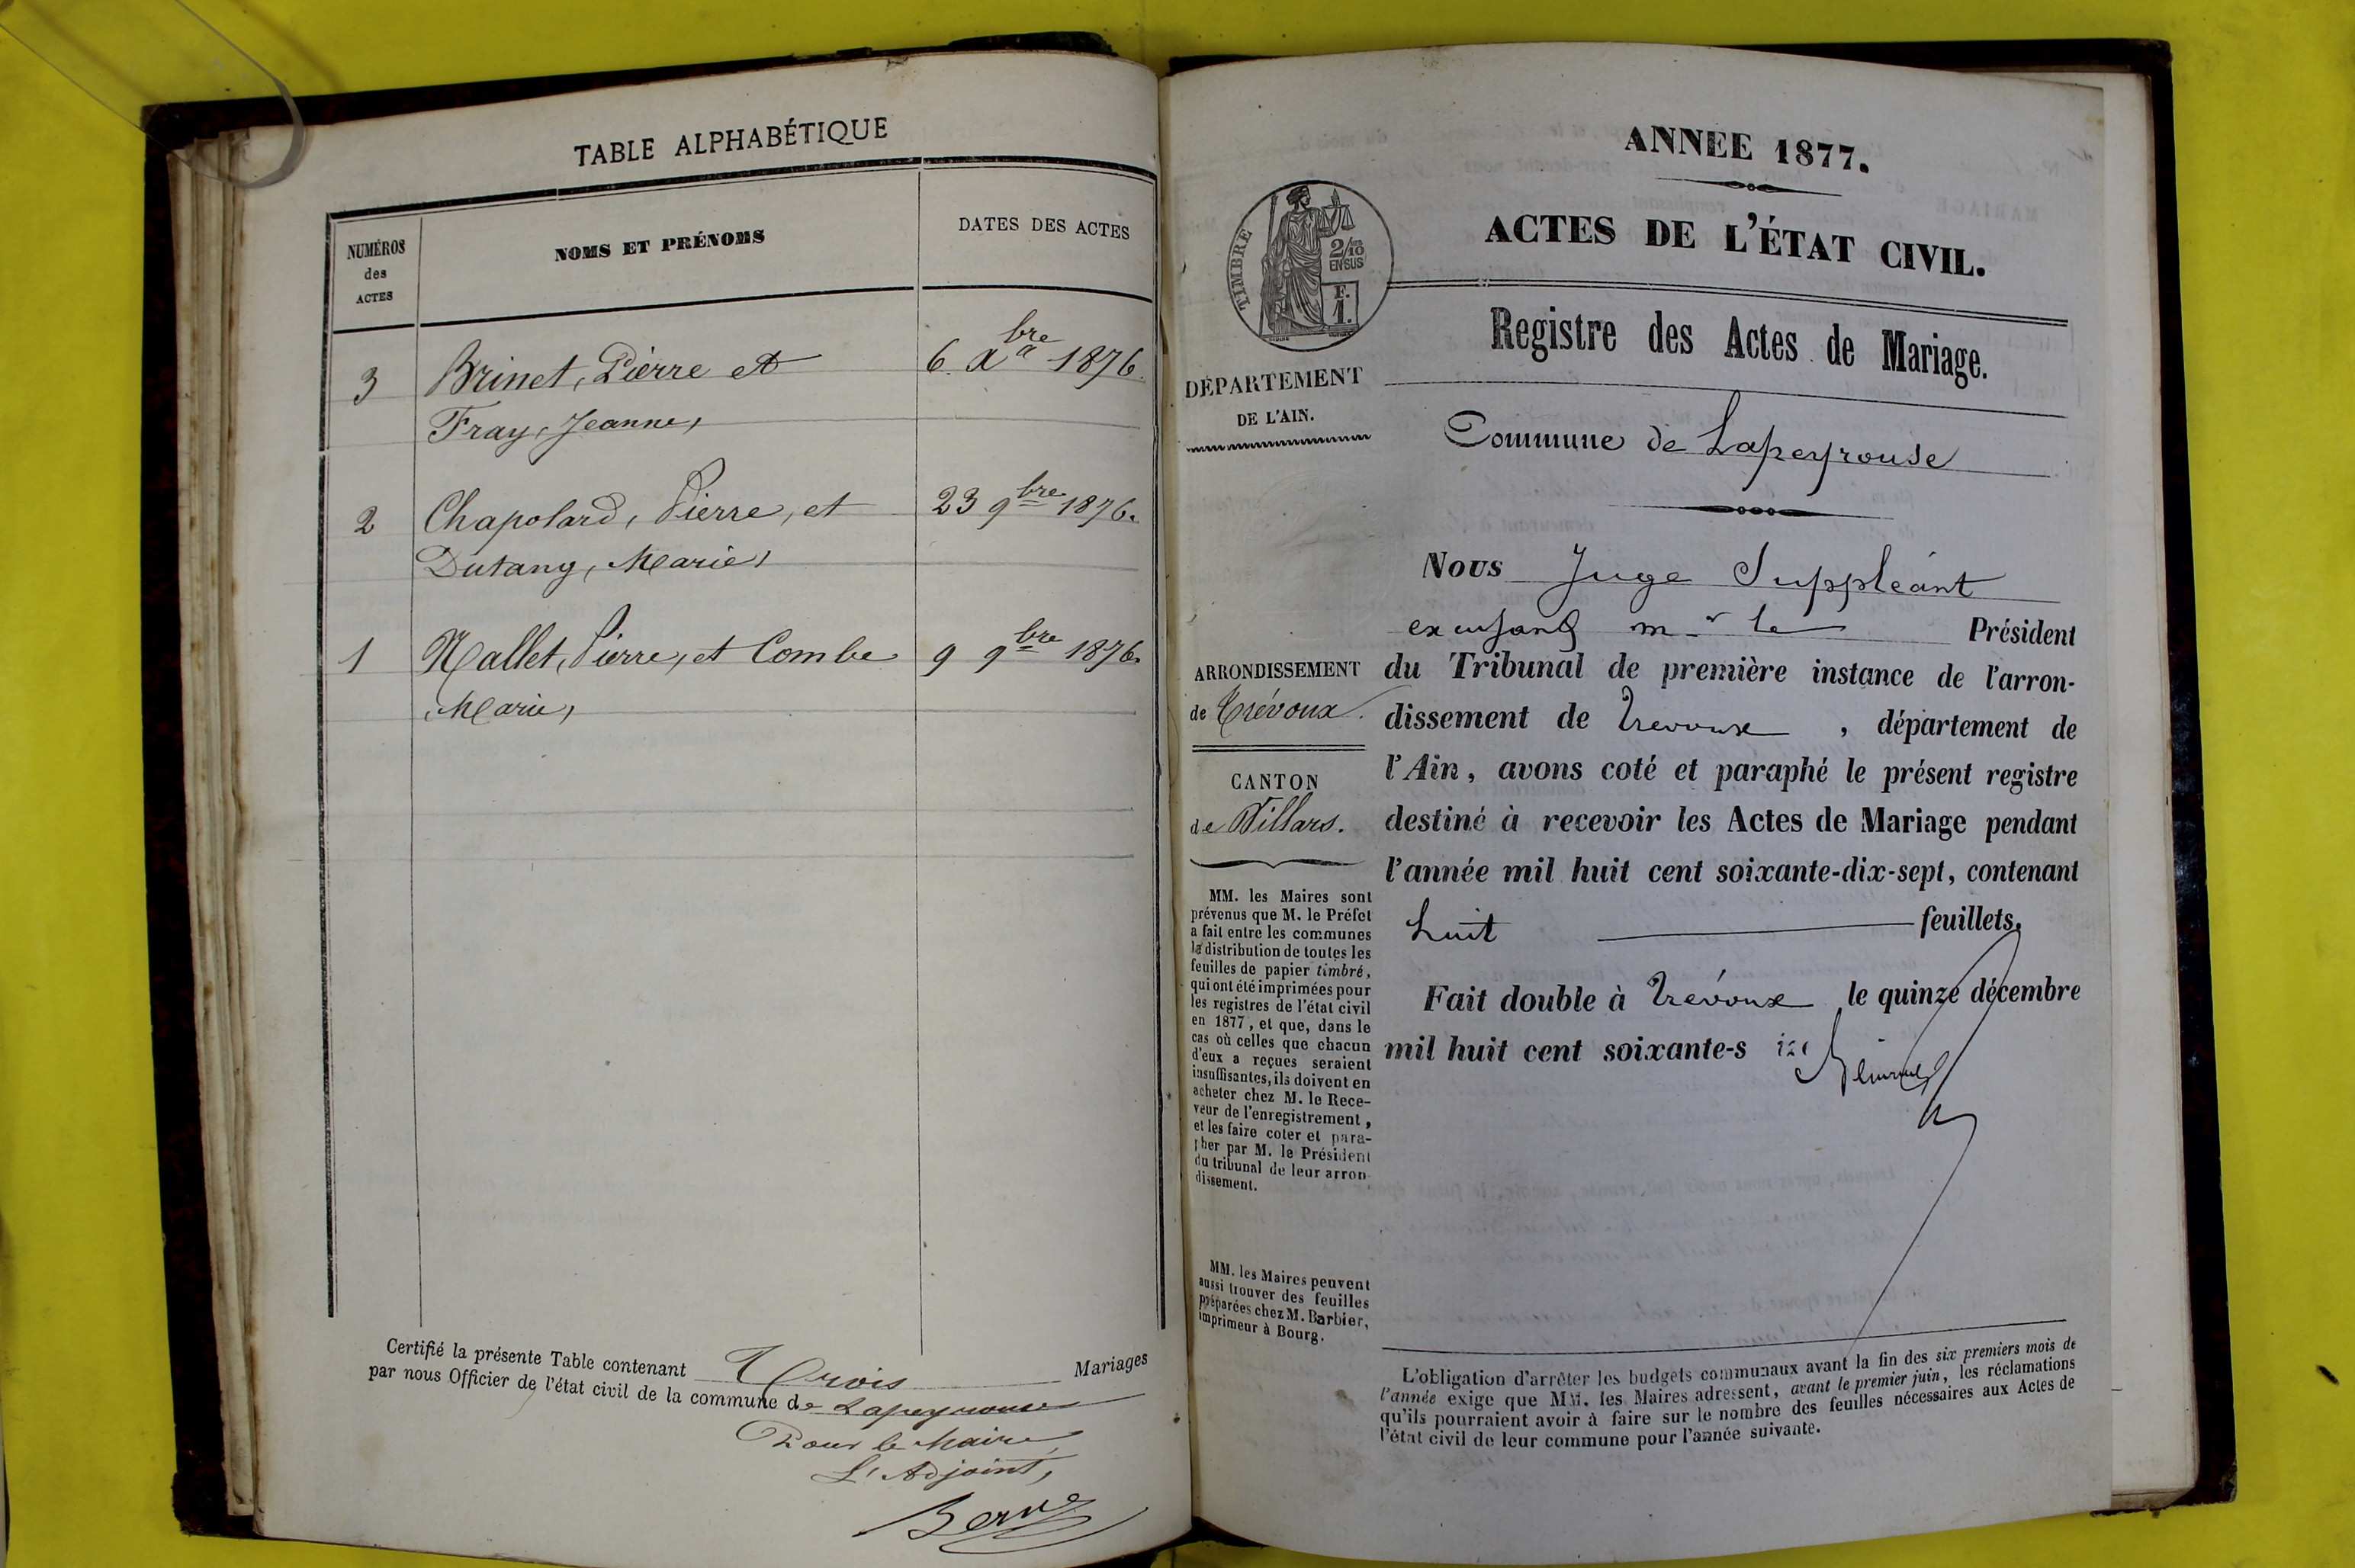 TABLE ALPHABÉTIQUE
NUMÉROS
des
ACTES
NOMS ET PRÉNOMS
DATES DES ACTES
3 Brinet, Pierre et 6 Xbre 1876.
Fray, Jeanne,
2 Chapolard, Pierre, et 23 9bre 1876.
Dutang, Marie,
1 Mallet, Pierre, et Combe 9 9bre 1876.
Marie,
Certifié la présente Table contenant Trois Mariages
par nous Officier de l'état civil de la commune de Lapeyrouse
Pour le Maire,
L'Adjoint,
ANNÉE 1877.
ACTES DE L'ÉTAT CIVIL.
TIMBRE
2/10
EN SUS
F.
1.
Registre des Actes de Mariage.
DÉPARTEMENT
DE L'AIN.
Commune de Lapeyrouse
Nous Juge Suppléant
Mr le Président
ARRONDISSEMENT
de Trévoux.
du Tribunal de première instance de l'arron-
dissement de Trevoux, département de
l'Ain, avons coté et paraphé le présent registre
destiné à recevoir les Actes de Mariage pendant
l'année mil huit cent soixante-dix-sept, contenant
huit feuillets.
Fait double à Trévoux le quinze décembre
mil huit cent soixante-s
CANTON
de Villars.
MM. les Maires sont
prévenus que M. le Préfet
a fait entre les communes
la distribution de toutes les
feuilles de papier timbré,
qui ont été imprimées pour
les registres de l'état civil
en 1877, et que, dans le
cas où celles que chacun
d'eux a reçues seraient
insuffisantes, ils doivent en
acheter chez M. le Rece-
veur de l'enregistrement,
et les faire coter et para-
pher par M. le Président
du tribunal de leur arron-
dissement.
MM. les Maires peuvent
aussi trouver des feuilles
préparées chez M. Barbier,
imprimeur à Bourg.
L'obligation d'arrêter les budgets communaux avant la fin des six premiers mois de
l'année exige que MM. les Maires adressent, avant le premier juin, les réclamations
qu'ils pourraient avoir à faire sur le nombre des feuilles nécessaires aux Actes de
l'état civil de leur commune pour l'année suivante.